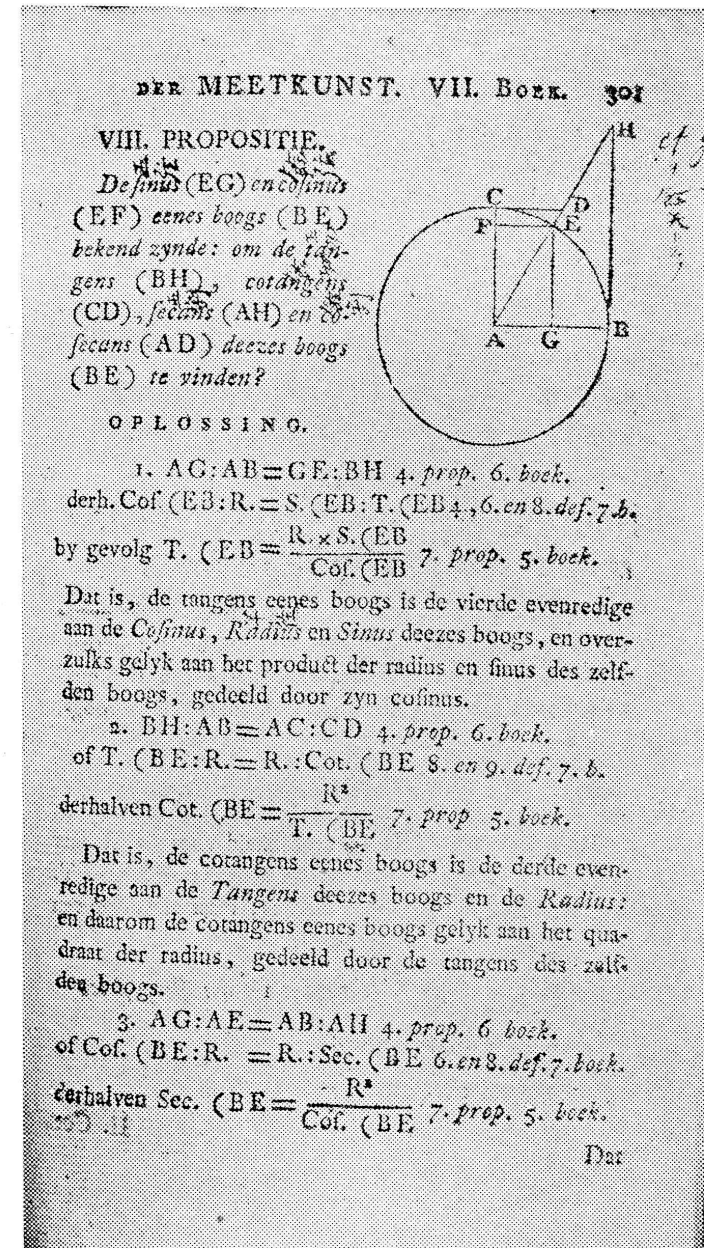 DER MEETKUNST. VII. BOEK. 301
VIII. PROPOSITIE.
De sinus (EG) en cosinus
(EF) eenes boogs (BE)
bekend zynde: om de tan-
gens (BH), cotangens
(CD), secans (AH) en co-
secans (AD) deezes boogs
(BE) te vinden?
H
C
D
F
E
A
G
B
OPLOSSING.
1. AG:AB=GE:BH 4. prop. 6. boek.
derh. Cof. (EB:R.=S. (EB:T. (EB 4., 6. en 8. def. 7. b.
by gevolg T. (EB = R. × S. (EB / Cof. (EB 7. prop. 5. boek.
Dat is, de tangens eenes boogs is de vierde evenredige
aan de Cosinus, Radius en Sinus deezes boogs, en over-
zulks gelyk aan het product der radius en sinus des zelf-
den boogs, gedeeld door zyn cosinus.
2. BH:AB=AC:CD 4. prop. 6. boek.
of T. (BE:R.=R.:Cot. (BE 8. en 9. def. 7. b.
derhalven Cot. (BE = R² / T. (BE 7. prop 5. boek.
Dat is, de cotangens eenes boogs is de derde even-
redige aan de Tangens deezes boogs en de Radius:
en daarom de cotangens eenes boogs gelyk aan het qua-
draat der radius, gedeeld door de tangens des zelf-
den boogs.
3. AG:AE=AB:AH 4. prop. 6 boek.
of Cof. (BE:R. =R.:Sec. (BE 6. en 8. def. 7. boek.
derhalven Sec. (BE = R² / Cof. (BE 7. prop. 5. boek.
Dat